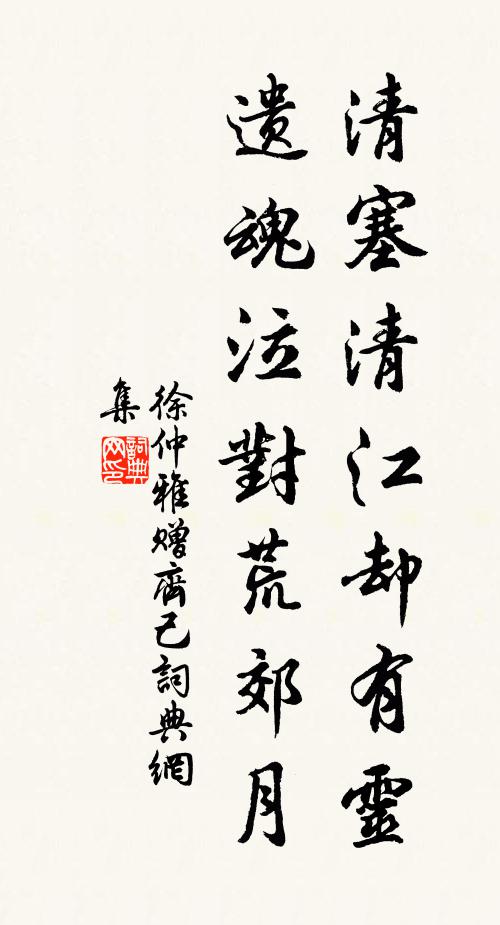 清塞清江却有靈
遺魂泣對荒郊月
徐仲雅贈齊己詞典網
集
詞典
网印